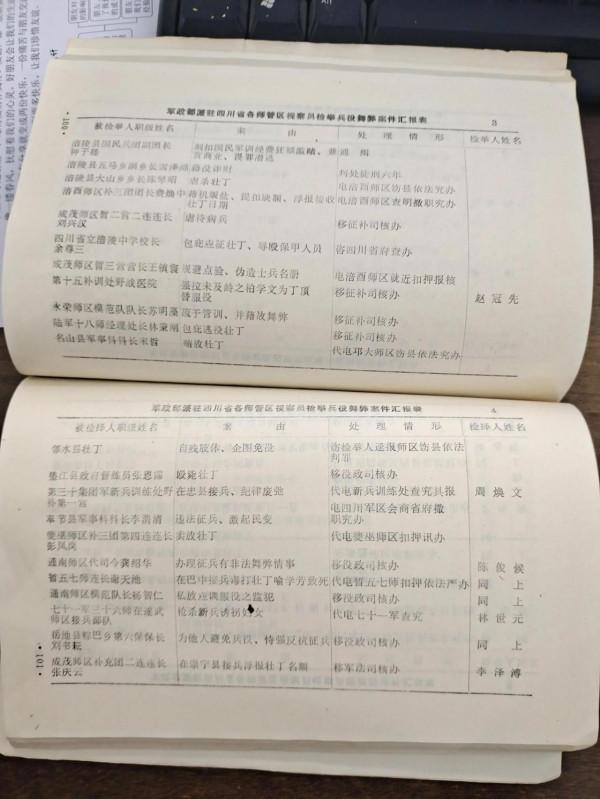 军政部派驻四川省各师管区视察员检举兵役舞弊案件汇报表 3
被检举人职级姓名 案由 处理情形 检举人姓名
涪陵县国民兵团副团长 尅扣国民军训经费狂嫖滥赌、兼 通缉
营商业、畏罪潜逃
涪陵县五马乡副乡长 役诈财 判处徒刑六年
涪陵县大山乡乡长陈翠昭 虐杀壮丁 电涪酉师区饬县依法究办
涪酉师区补三团团长费焕中 浮报接收 电涪酉师区查明撤职究办
壮丁日期
成茂师区暂二营二连连长 虐待病兵 移征补司核办
刘兴汉
四川省立涪陵中学校长 包庇应征壮丁、辱殴保甲人员 咨四川省府查办
余尊三
成茂师区暂三营营长王镇寰 规避点验、伪造士兵名册 电涪酉师区就近扣押报核
第十五补训处野战医院 强拉未及龄之柏学文为丁顶 移征补司核办 赵冠先
替服役
永荣师区模范队队长苏明藻 疏于管训、并藉故舞弊 移征补司核办
陆军十八师经理处长林秉刚 包庇逃役壮丁 移征补司核办
名山县军事科科长宋 纵放壮丁 代电邛大师区饬县依法究办
·100·
军政部派驻四川省各师管区视察员检举兵役舞弊案件汇报表 4
被检择人职级姓名 案由 处理情形 检择人姓名
邻水县壮丁 自残肢体、企图免役 饬检举人递报师区饬县依法
判罪
垫江县政府督练员张恩霈 殴毙壮丁 移役政司核办
第三十集团军新兵训练处野 在忠县接兵、纪律废弛 代电新兵训练处查究具报 周焕文
补第一营 电四川军区会商省府撤
奉节县军事科科长李清清 违法征兵、激起民变 职究办
夔巫师区补三团第四连连长 卖放壮丁 代电夔巫师区扣押讯办
彭凤岗
通南师区代司令龚绍华 办理征兵有非法舞弊情事 移役政司核办 陈俊候
暂五七师连长谢天池 在巴中接兵毒打壮丁喻学芳致死 代电暂五七师扣押依法严办 同上
通南师区模范队长杨智仁 私放应调服役之监犯 移役政司核办 同上
七十一军三十六师在遂武 枪杀新兵诱拐妇女 代电七十一军查究 林世元
师区接兵部队
岳池县程巴乡第六保保长 为他人避免兵役、恃强反抗征兵 移役政司核办 同上
刘书耘
成茂师区补充团二连连长 在崇宁县接兵浮报壮丁名额 移军法司核办 李泽溥
张庆云
·101·